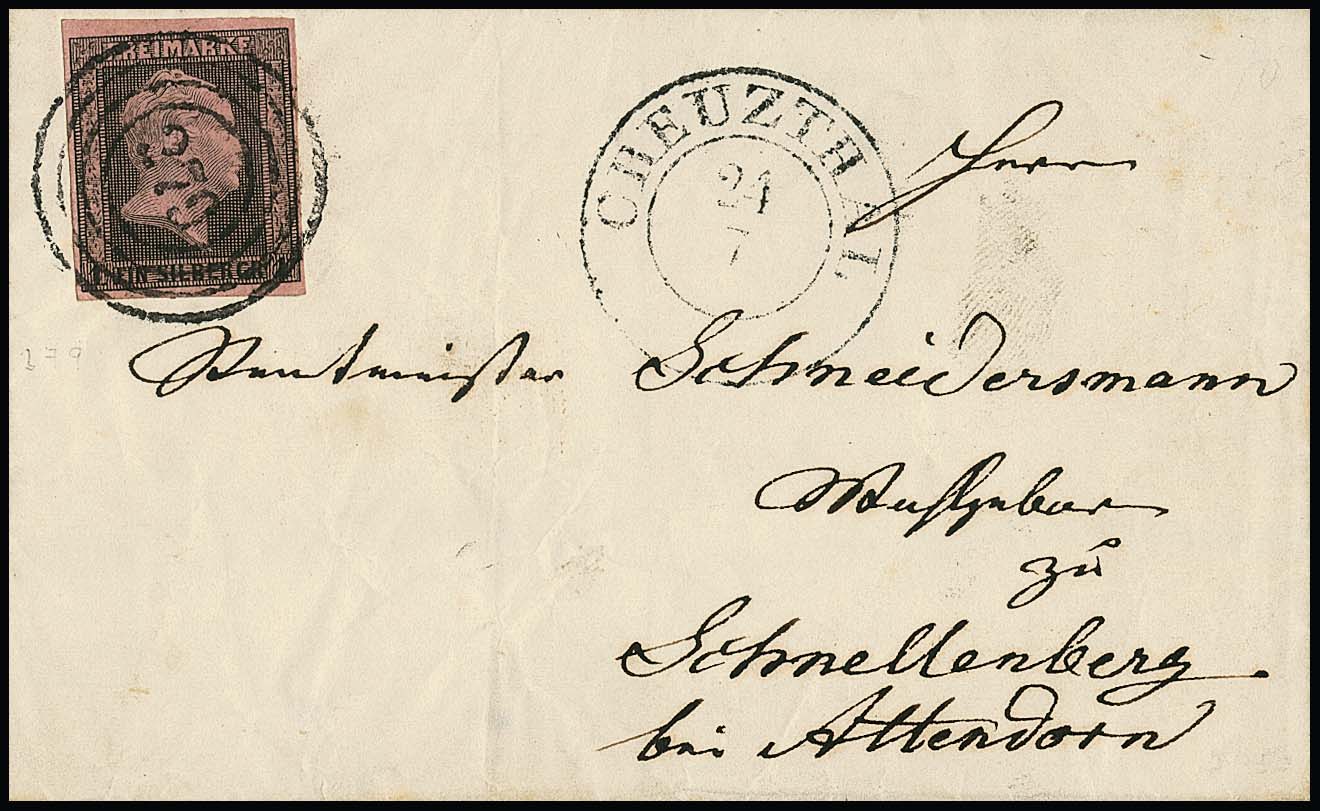 FREIMARKE
EIN SILBERGR.
CREUZTHAL
24
7
Herrn
Rentmeister Schneidersmann
zu
Schnellenberg.
bei Attendorn